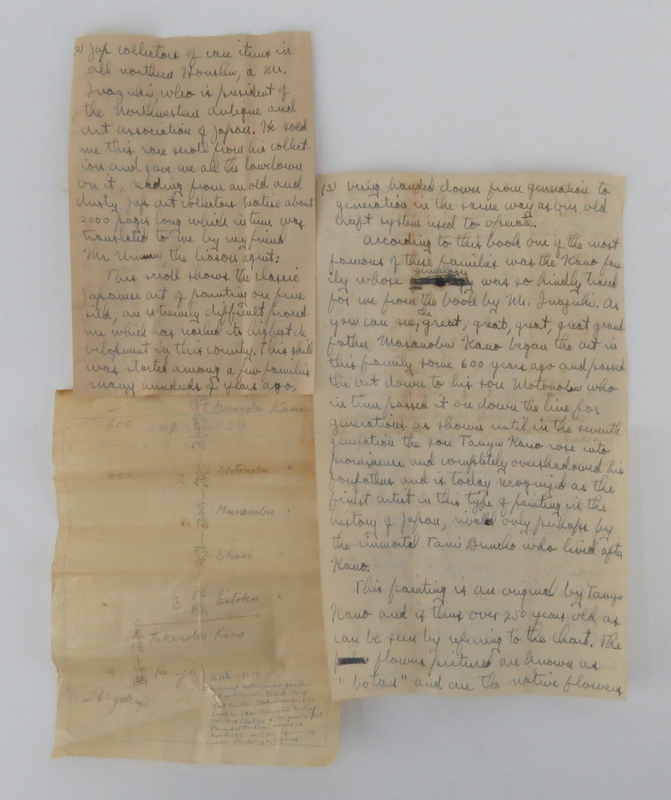 2) Jap collectors of rare items in
all northern Honshu, a Mr.
Inazuki, who is president of
the Northwestern antique and
art association of Japan. He sold
me this rare scroll from his collect-
ion and gave me all the lowdown
on it, reading from an old and
dusty Jap art collectors
2000 pages long which in turn was
translated to me by my friend
Mr. the liason agent:
This scroll shows the classic
Japanese art of painting on fine
silk, an extremely difficult
which has reached its highest de
velopment in this country. This skill
was started among a few families
many hundreds of years ago,
(3) being handed down from generation to
generation in the same way as our old
craft system used to operate.
According to this book one of the most
famous of these families was the Kano fam
ily whose genealogy was so kindly traced
for me from the book by Mr. Inazuki. As
you can see, the great, great, great, great grand
father Masanobu Kano began the art in
this family some 600 years ago and passed
the art down to his son Motonobu who
in turn passed it on down the line for
generations as shown until in the seventh
generation the son Tanyu Kano rose into
prominence and completely overshadowed his
forefathers and is today recognized as the
finest artist in this type of painting in the
history of Japan, rivaled only perhaps by
the immortal Tani Buncho who lived after
Kano.
This painting is an original by Tanyu
Kano and is thus over 250 years old as
can be seen by referring to the chart. The
flowers pictured are known as
"botan" and are the native flowers
600 Masanobu Kano
2 Motonobu "
Munanobu "
Shoei "
3 Eitoku "
Takanobu Kano
4
262 years ago
1602-1674